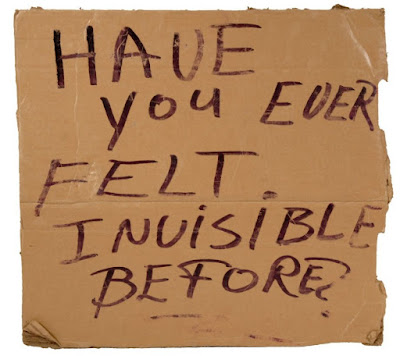 HAVE
you EVER
FELT.
INVISIBLE
BEFORE?